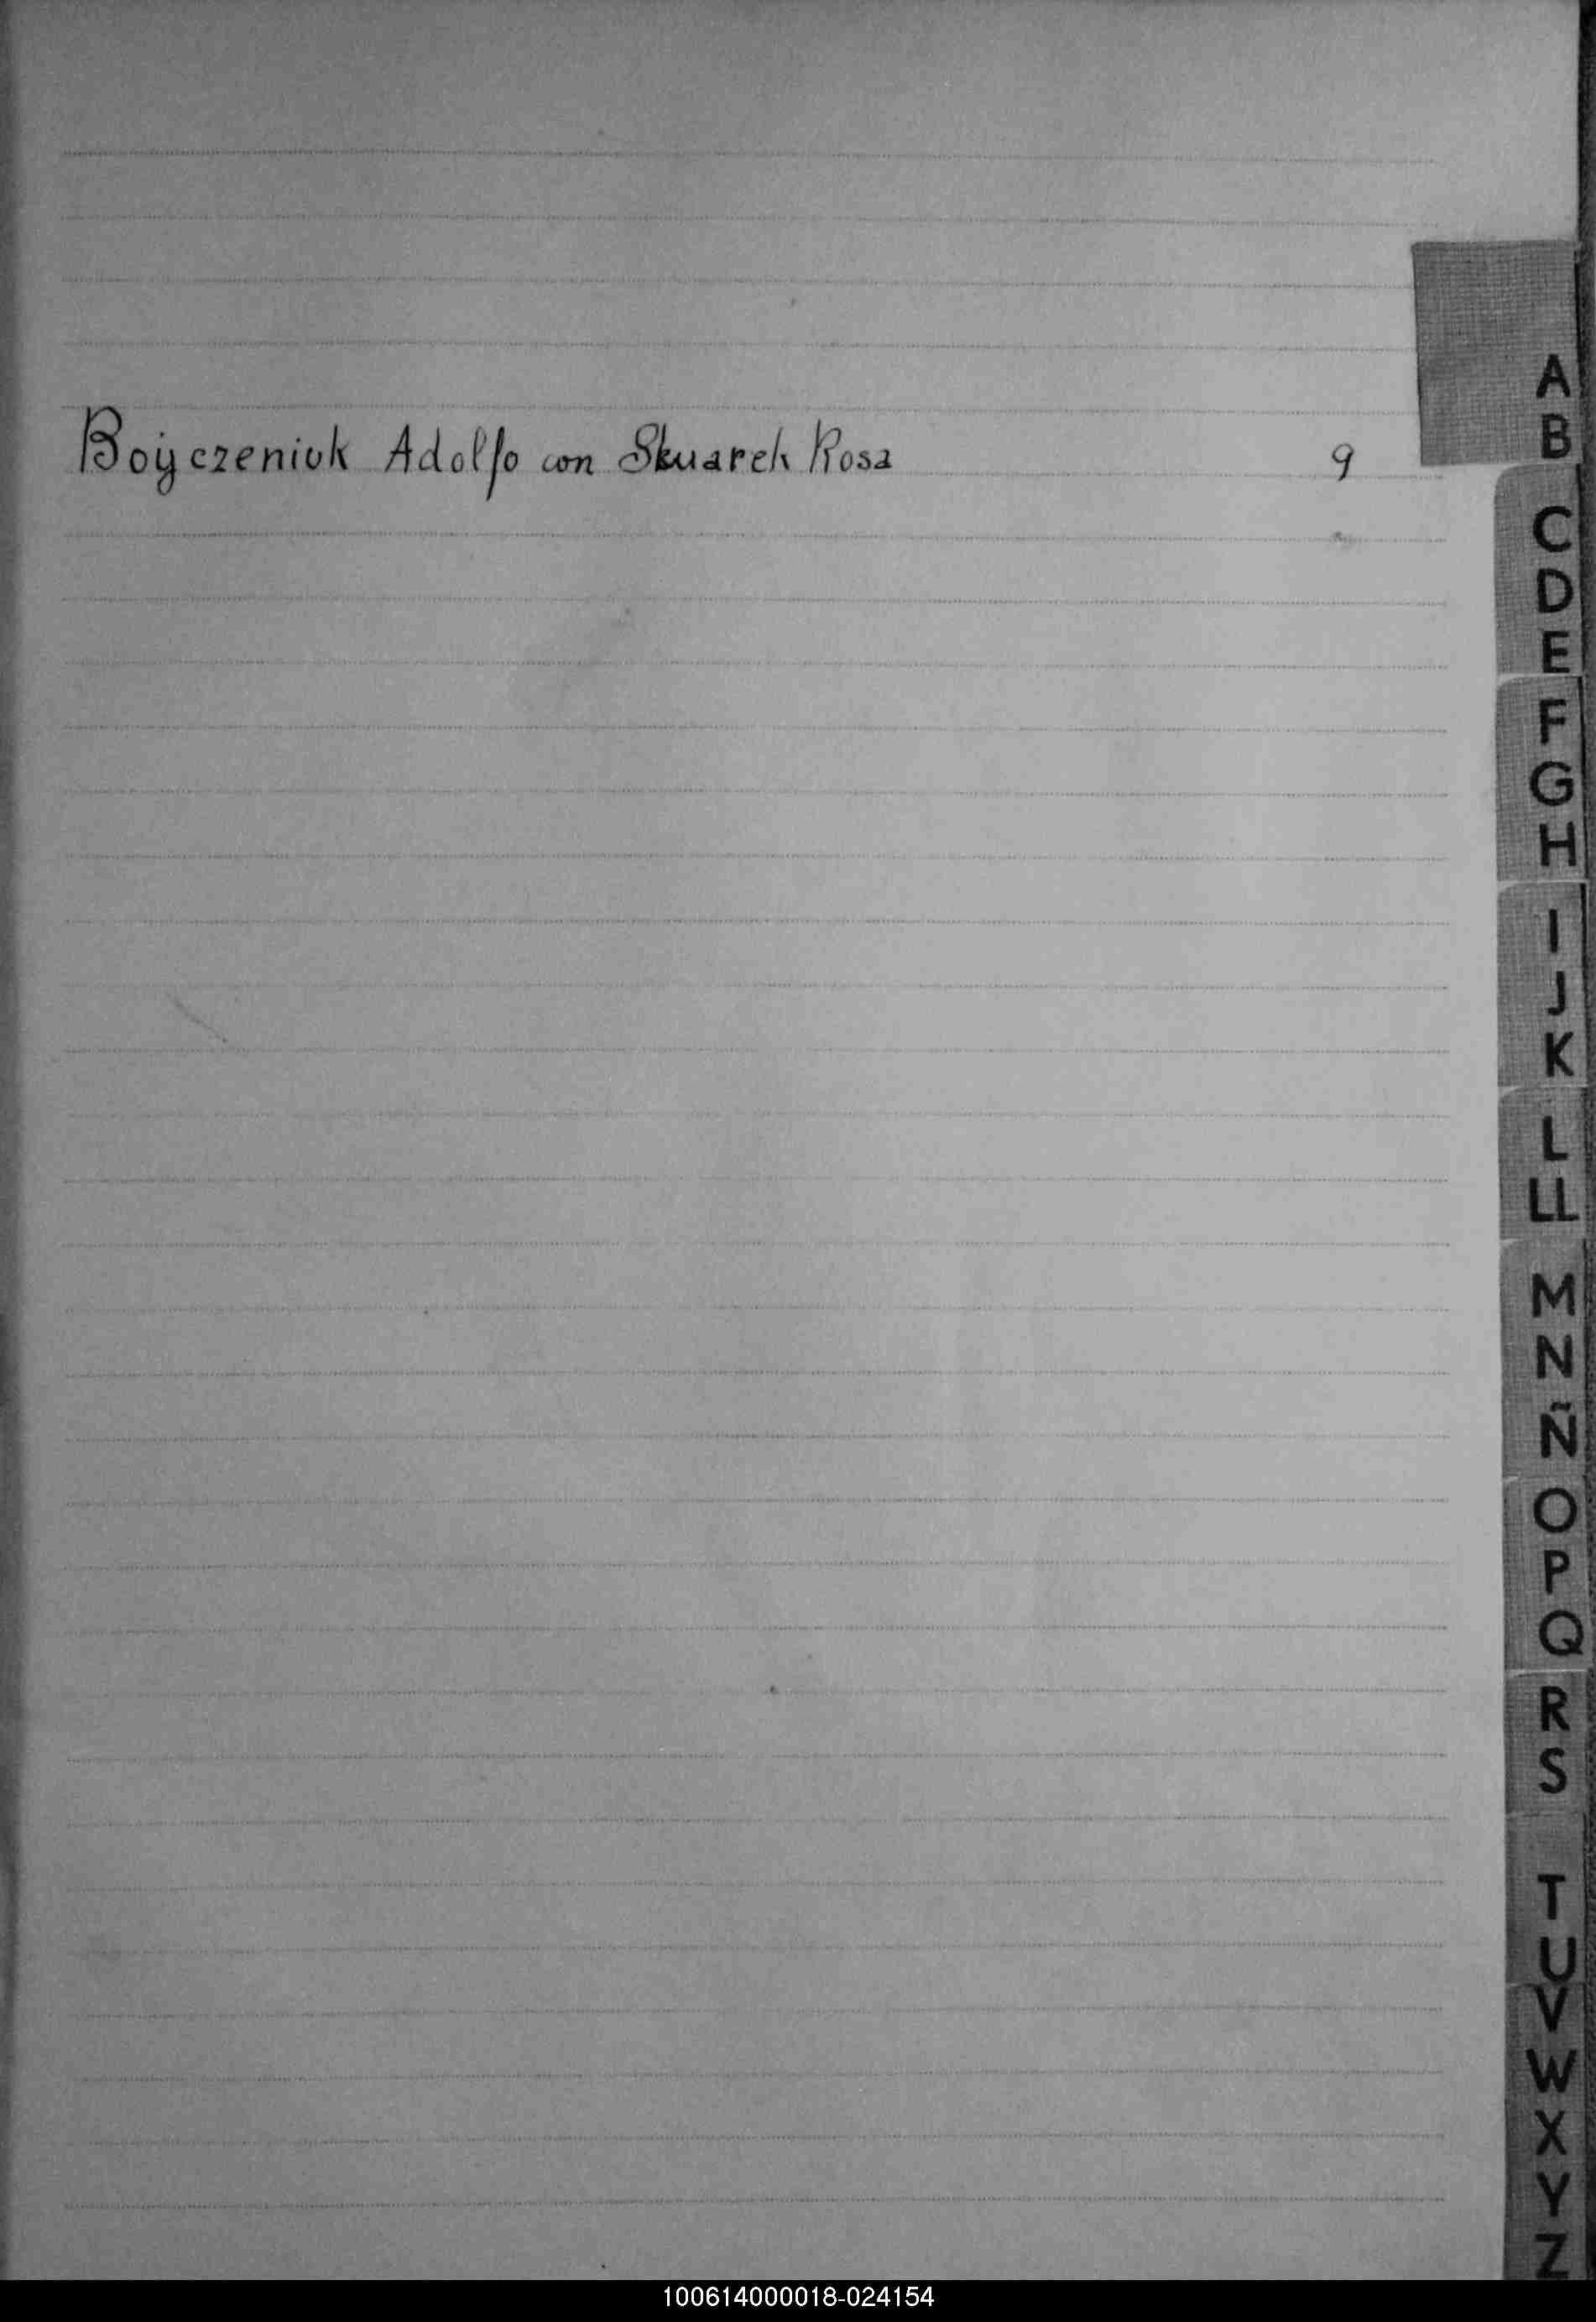 Boyczeniuk Adolfo con Skuarek Rosa 9
A
B
C
D
E
F
G
H
I
J
K
L
LL
M
N
Ñ
O
P
Q
R
S
T
U
V
W
X
Y
Z
100614000018-024154